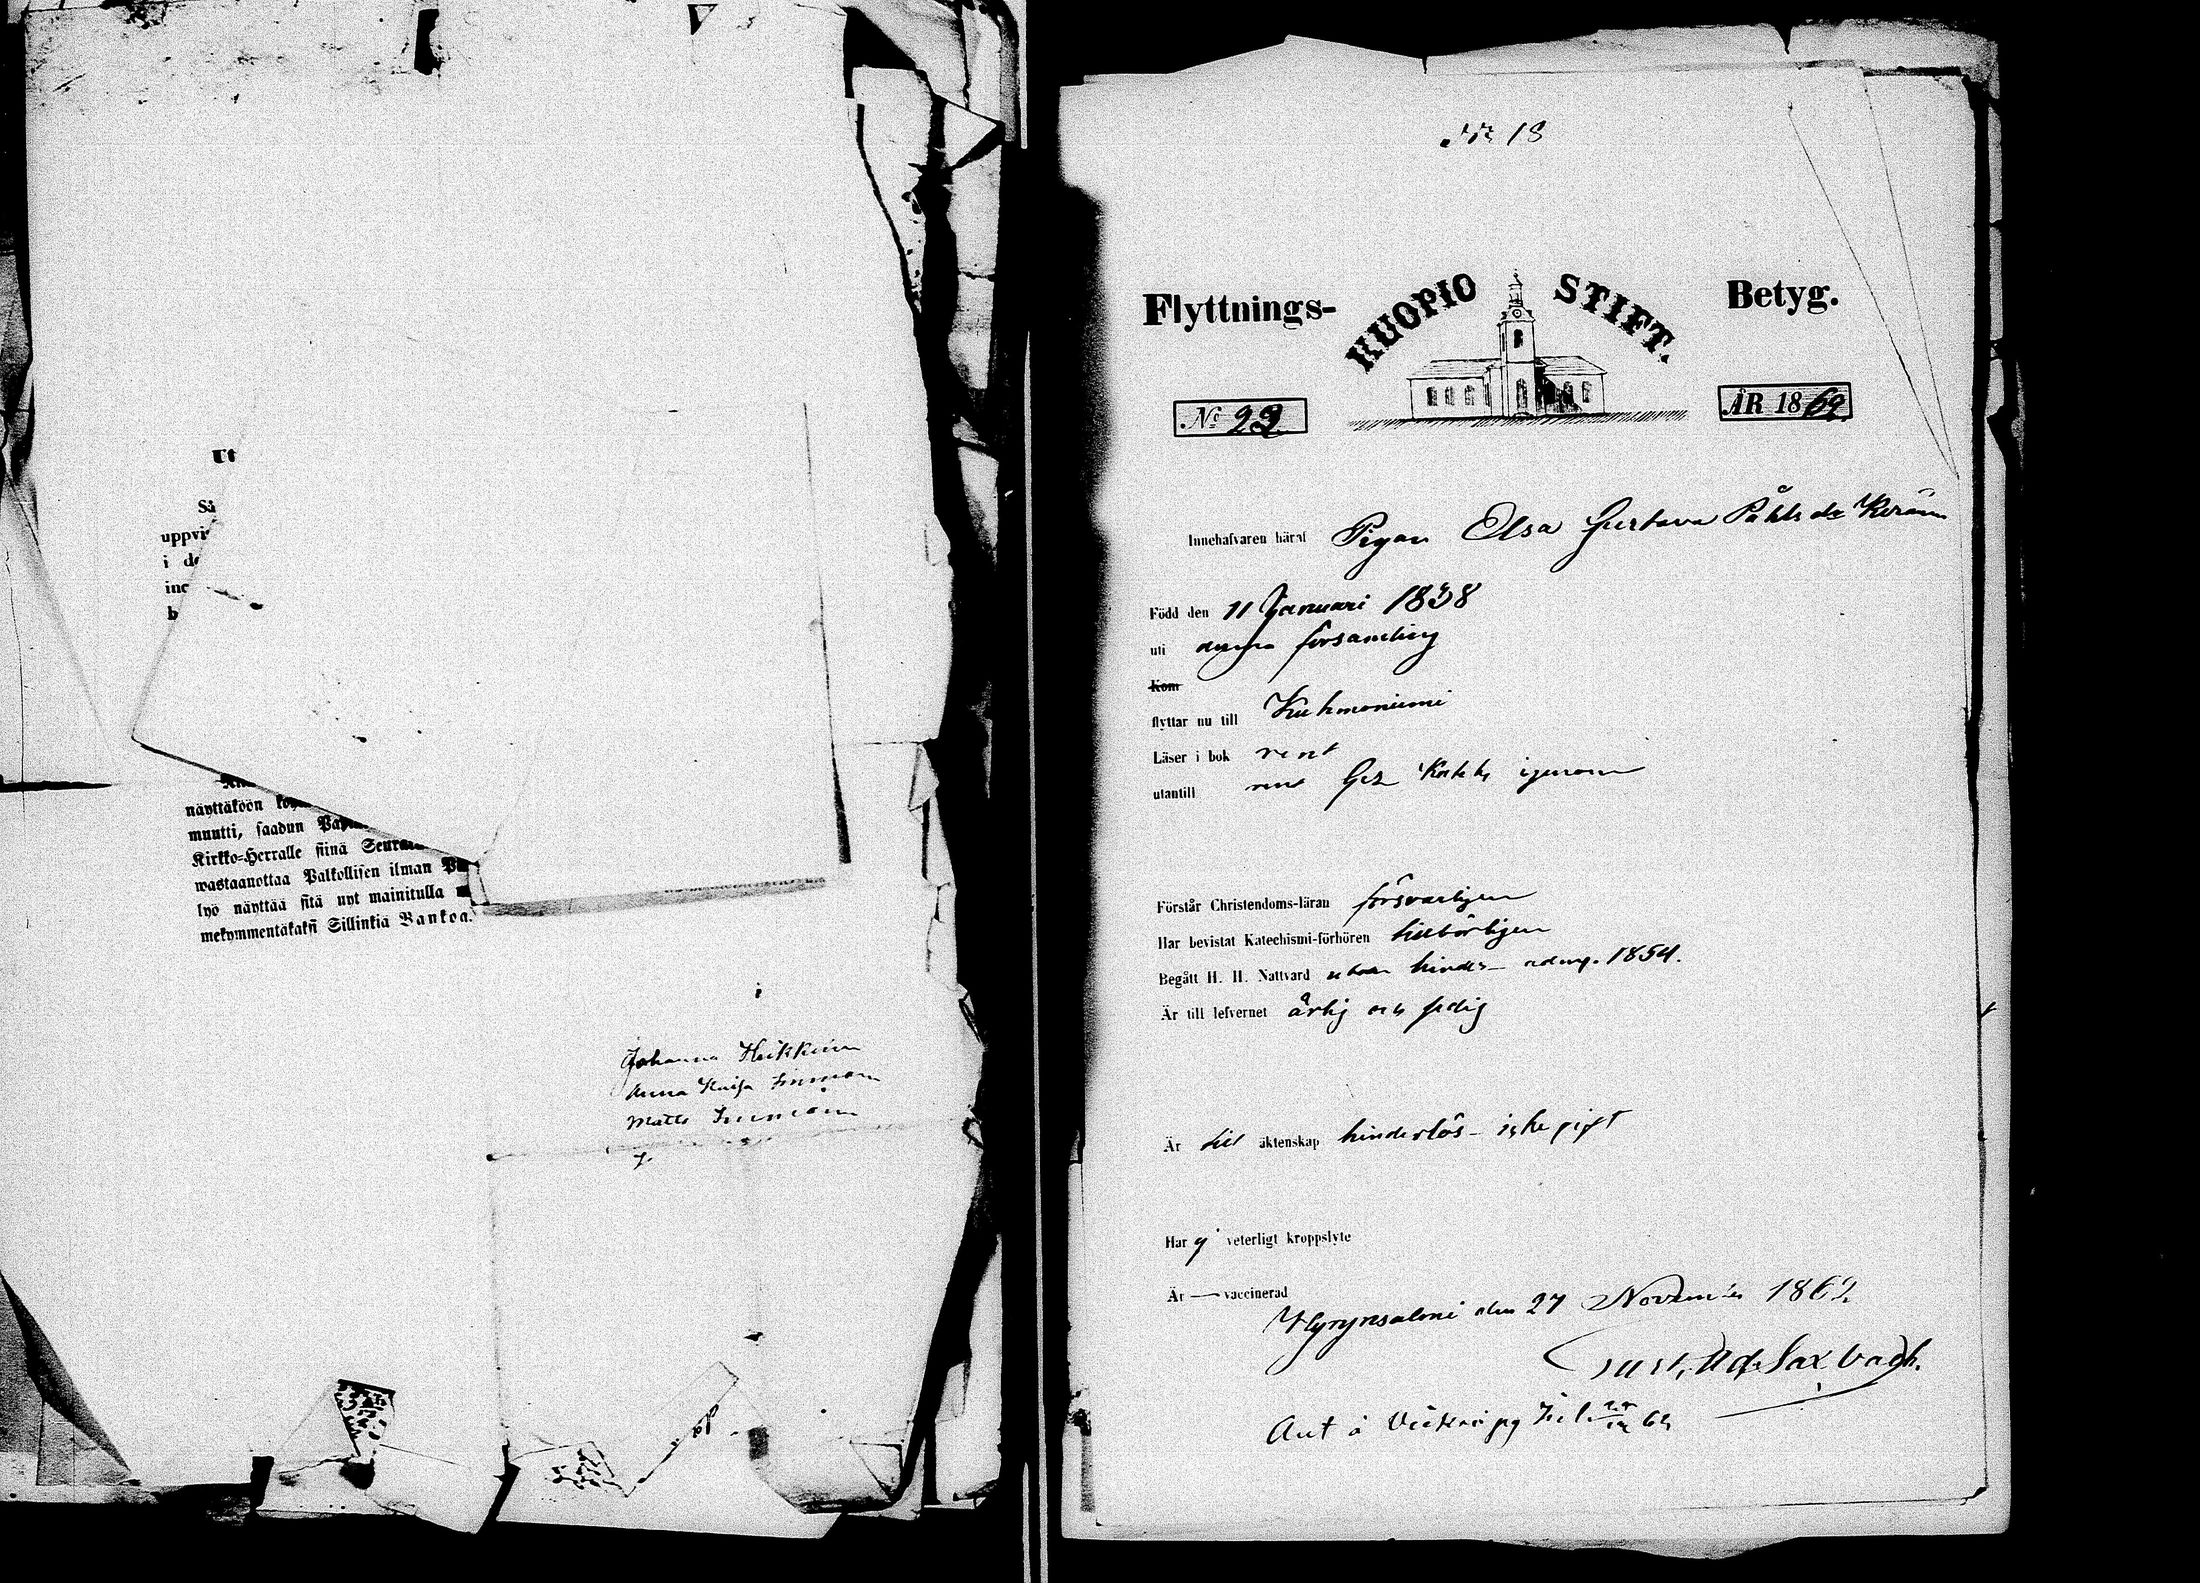 Ut
Så
uppvi
i de
inc
b
näyttäköön
muutti, saadun
Kirkko-Herralle siinä
wastaanottaa Palkollisen ilman
lyö näyttää sitä nyt mainitulla
mekymmentäkaksi Sillinkiä Bankoa.
Johanna Heikkinen
Anna Kaisa
Matts
№ 18
Flyttnings- KUOPIO STIFT. Betyg.
№ 22
ÅR 1862
Innehafvaren häraf Pigan Elsa Gustava Påhls dr Keränen
Född den 11 Januari 1838
uti denna församling
Kom
flyttar nu till Kuhmoniemi
Läser i bok rent
utantill
Förstår Christendoms-läran försvarligen
Har bevistat Katechismi-förhören tillbörligen
Begått H. H. Nattvard utan hinder admg. 1854.
Är till lefvernet ärlig och sedig
Är till äktenskap hinderlös - icke gift
Har ej veterligt kroppslyte
Är — vaccinerad
Hyrynsalmi den 27 November 1862
Gust. Ad. Saxbäck.